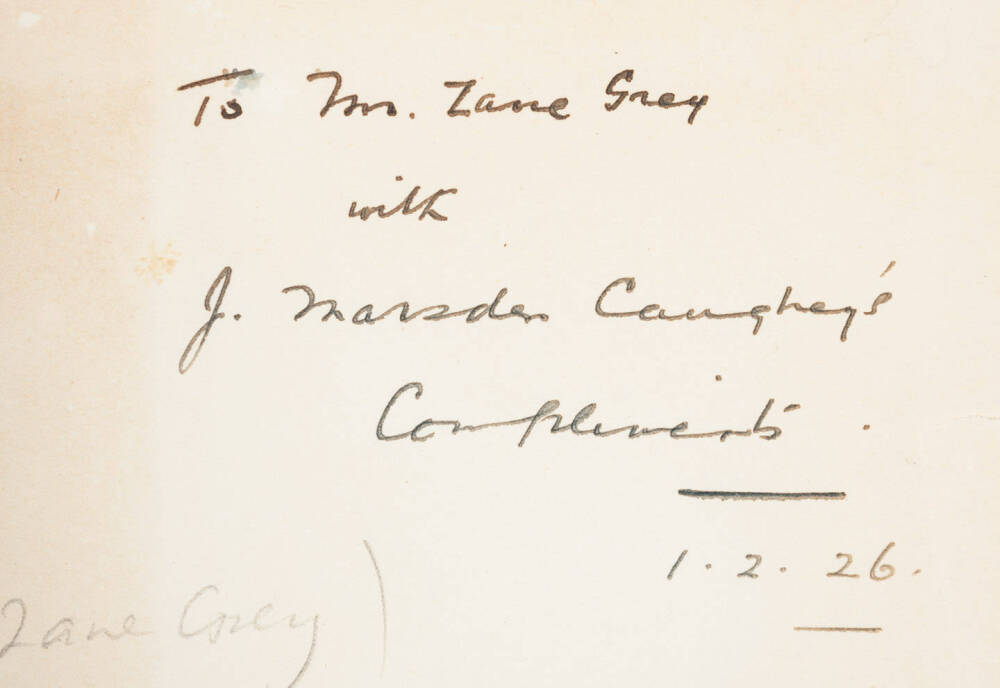 To Mr. Zane Grey
with
J. Marsden Caughey's
Compliments.
1.2.26.
Zane Grey)